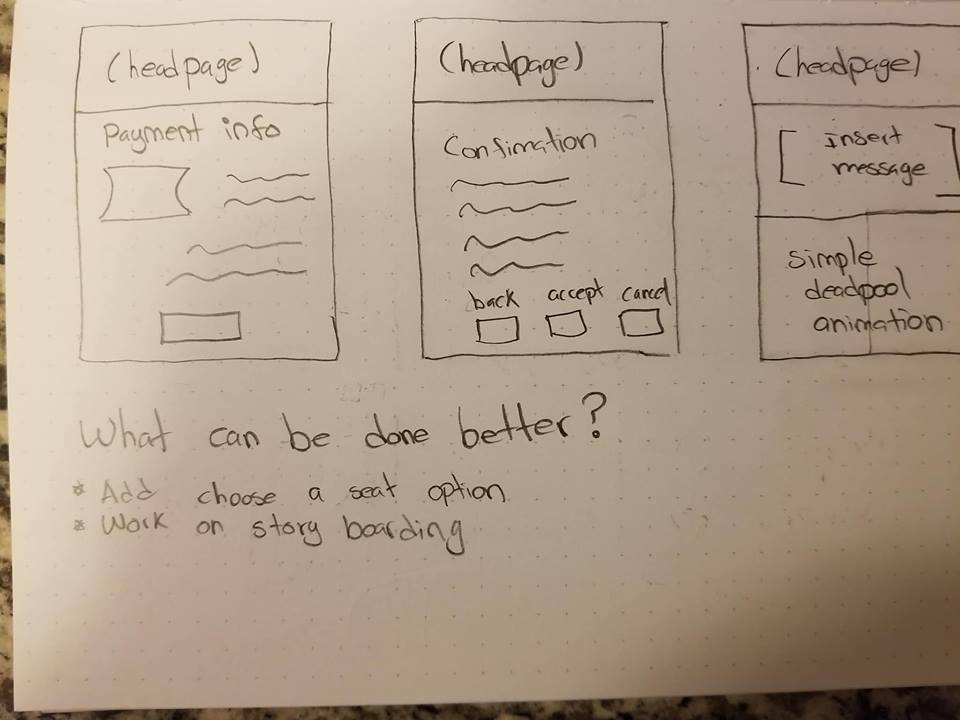 (headpage)
Payment info
(headpage)
Confimation
back accept cancel
(headpage)
insert
message
simple
deadpool
animation
What can be done better?
* Add choose a seat option
* Work on story boarding